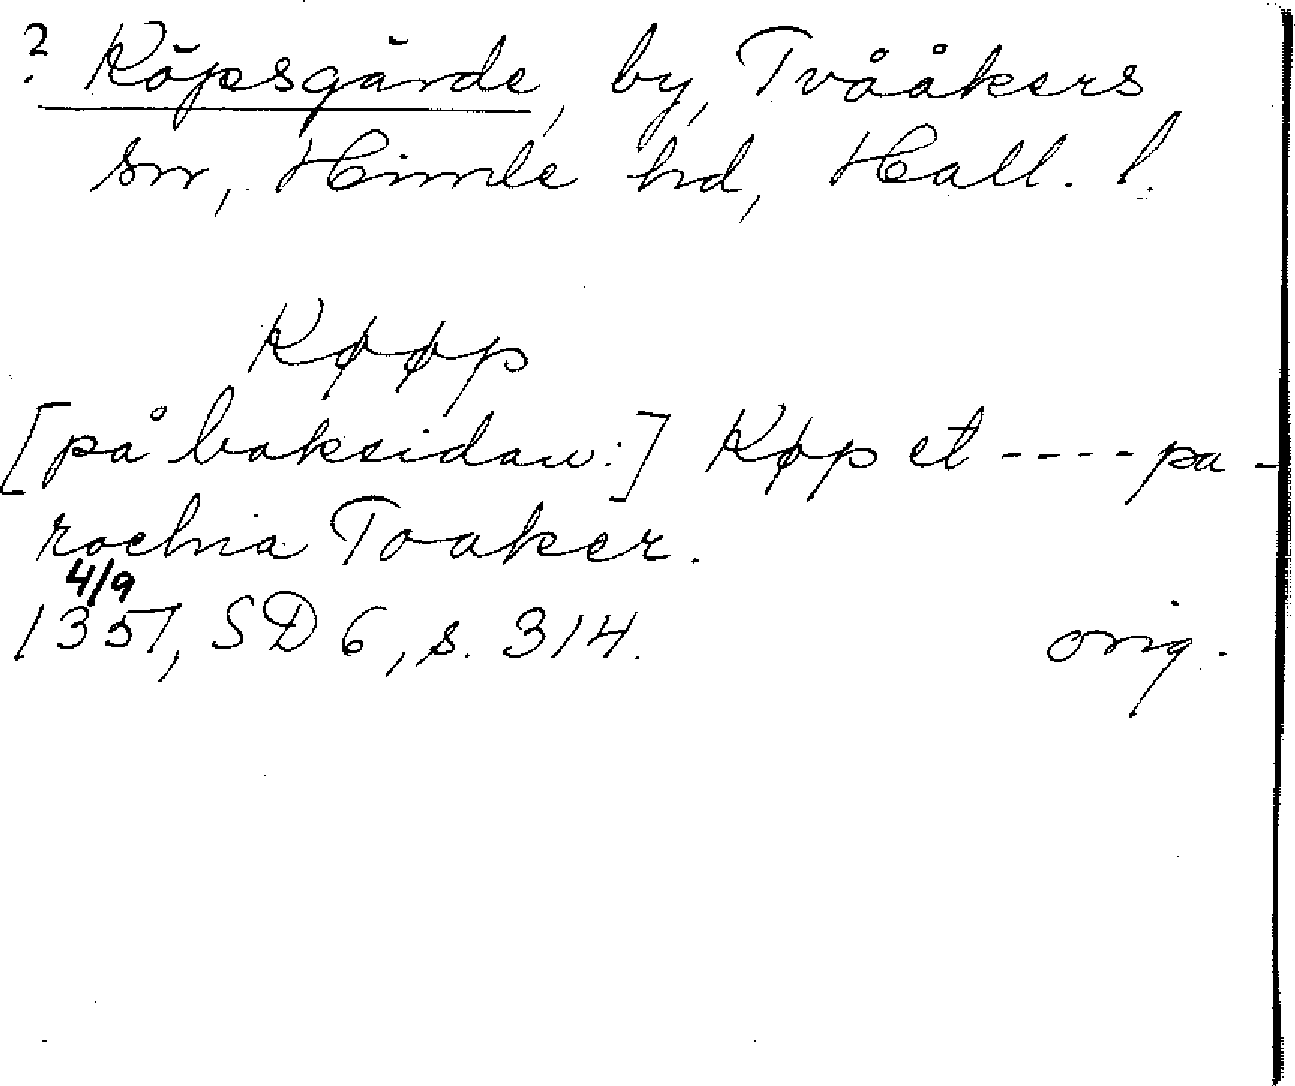 ? Köpsgärde, by, Tvååkers
sn, Himle hd, Hall. l.
Køøp
[på baksidan:] Køp et ---- pa-
rochia Toaker.
4/9
1351, SD 6, s. 314. orig.